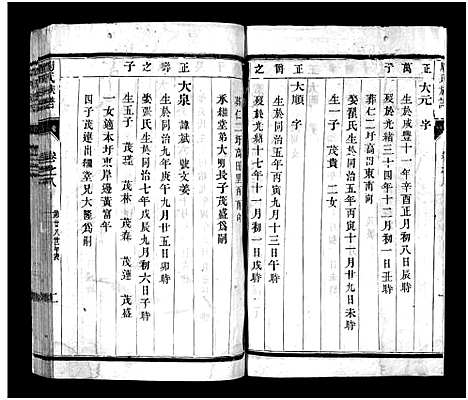 正 大元 字
萬 生於咸豐十一年辛酉正月初八日辰時
歿於光緒三十四年十二月初一日丑時
葬仁二圩高田東南向
娶翟氏生於同治五年丙寅十一月廿九日未時
生一子 茂貴 二女
正 大順 字
朝 生於同治五年丙寅十月十三日午時
之 歿於光緒 年十一月初一日戌時
葬仁二圩高田
承細堂弟大明長子茂盛為嗣
正 大泉 諱斌 號文姜
生於同治九年庚午九月廿五日卯時
之 娶張氏生於同治七年戊辰九月初六日子時
子 生五子 茂瑾 茂林 茂森 茂蓮 茂盛
一女適本圩惠岸邊黃富年
四子茂蓮出繼堂兄大隆為嗣
氏族譜
卷之八